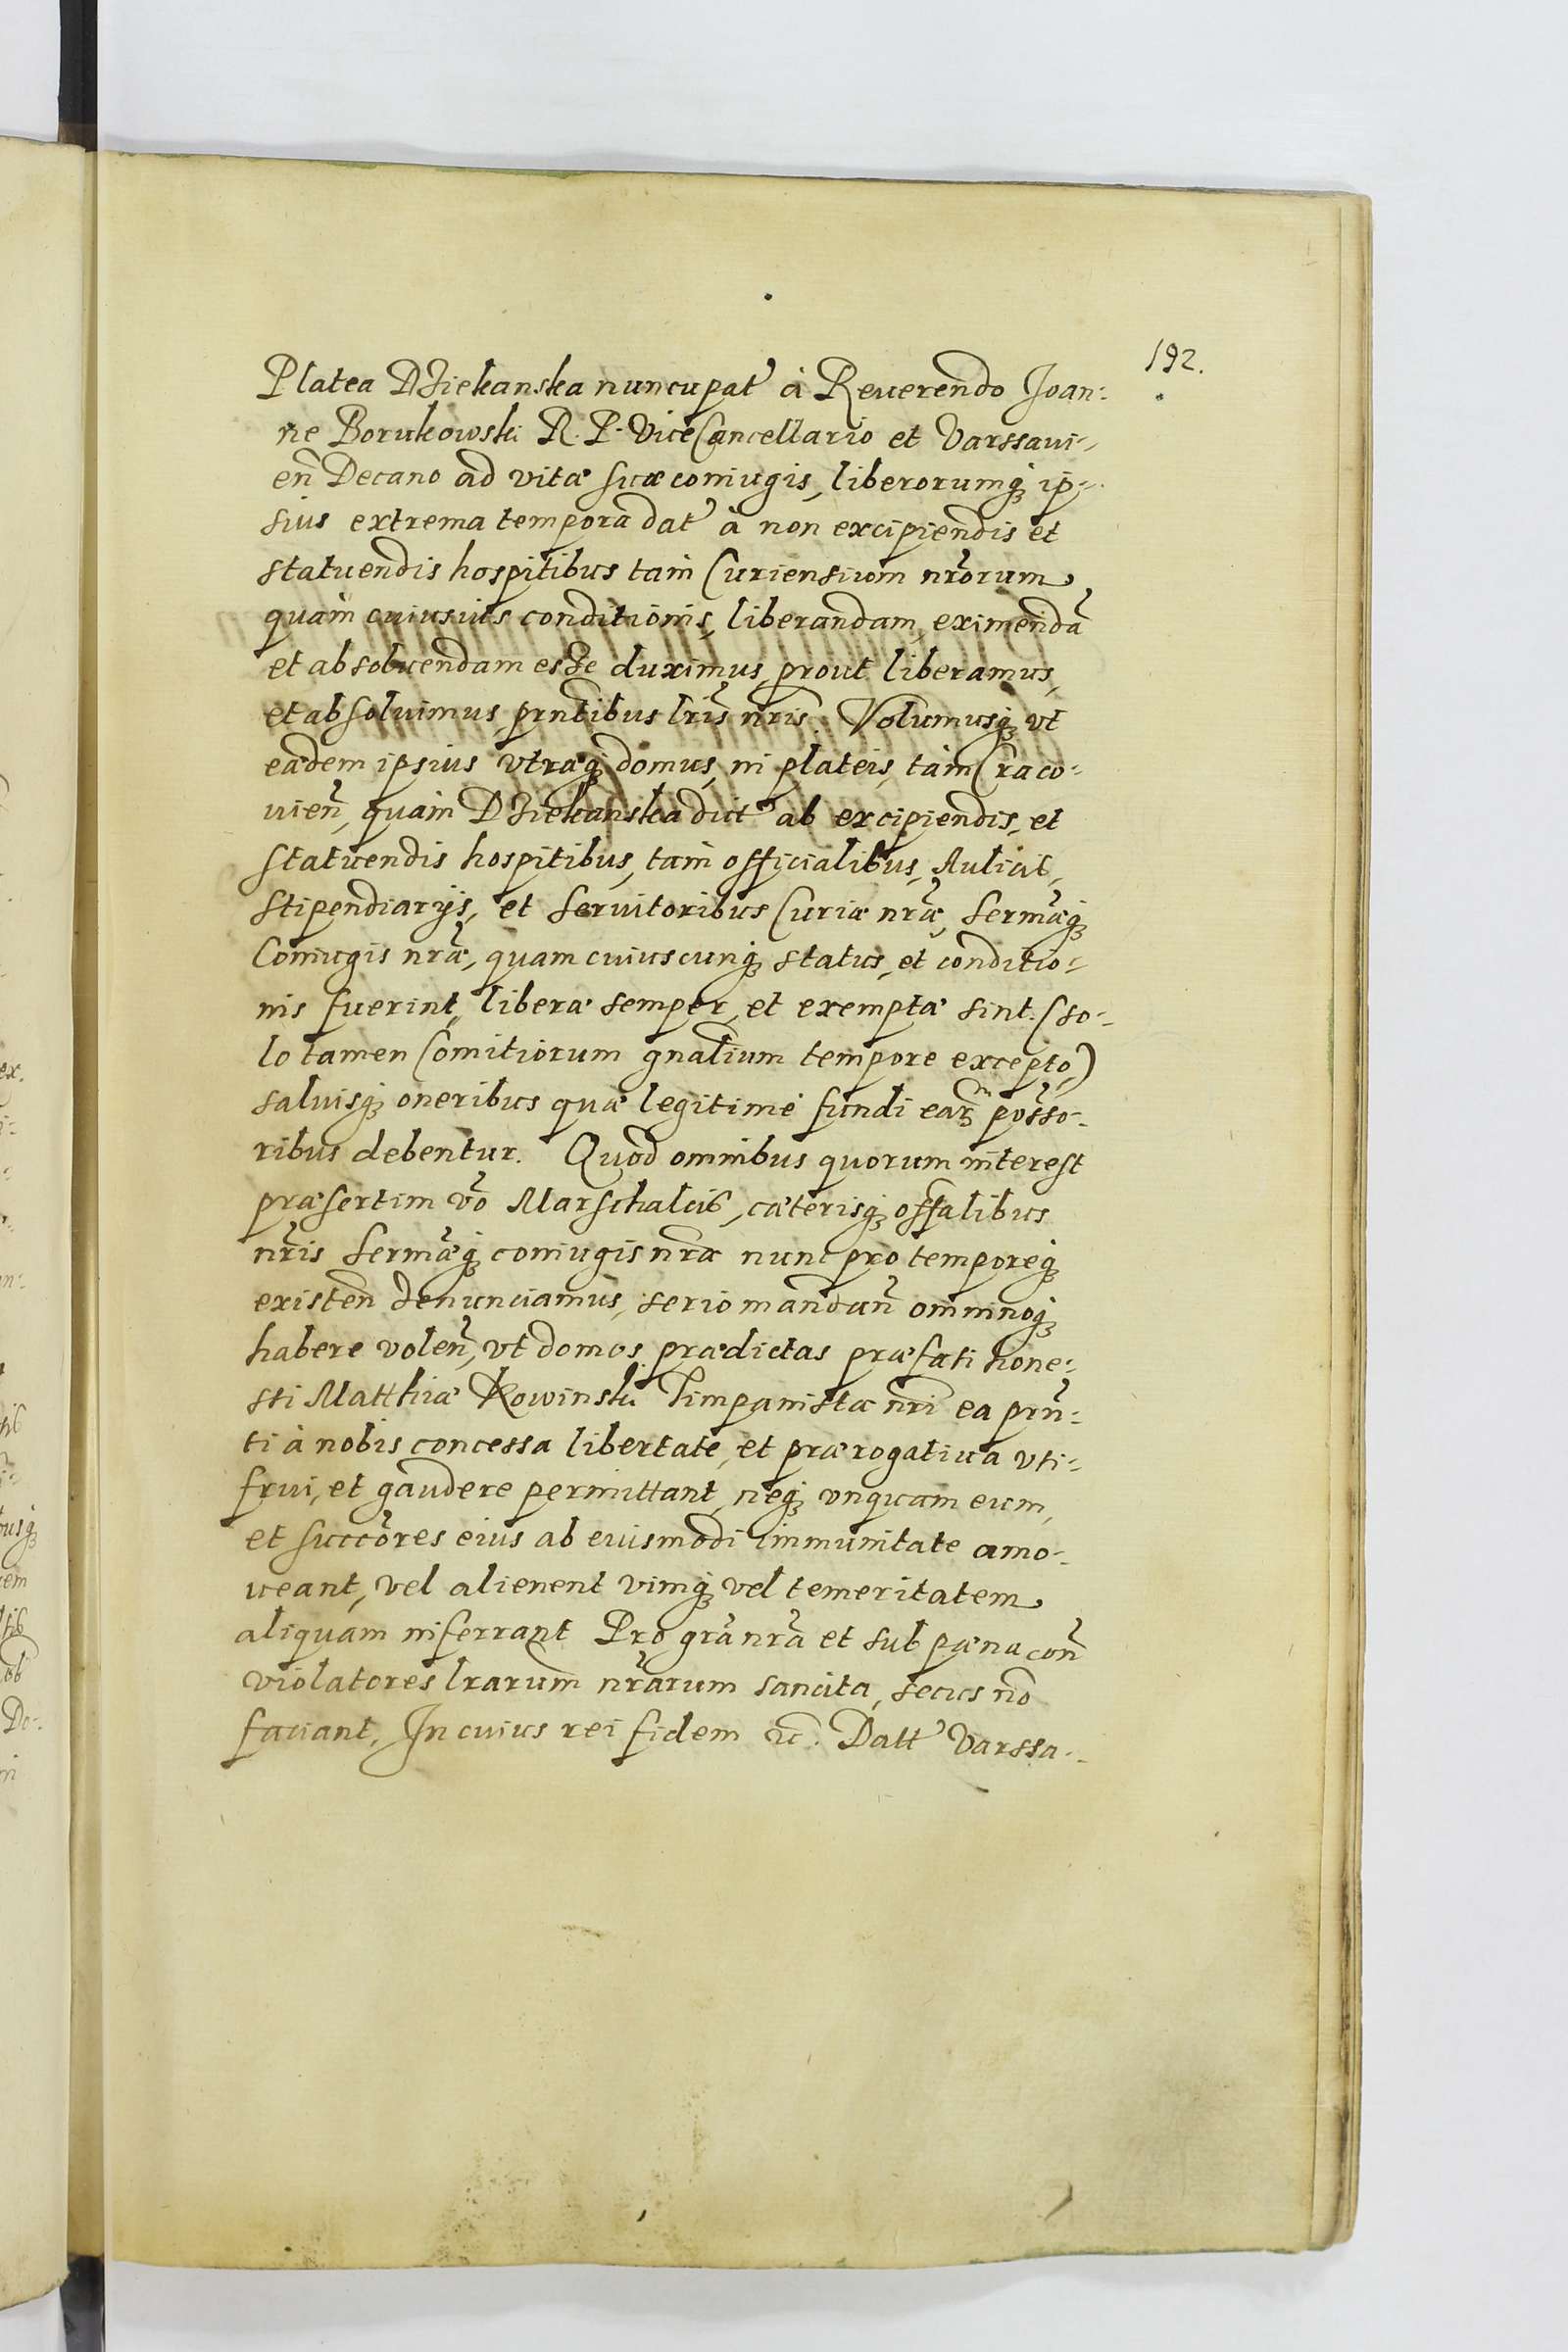 192.
Platea Dziekanska nuncupat à Reverendo Joan-
ne Borukowski R. P. ViceCancellario et Varssavi-
en̄ Decano ad vitæ suæ coniugis, liberorumq̨ ip-
sius extrema tempora dat à non excipiendis et
statuendis hospitibus tam Curiensium nr̄orum
quàm cuiusuis conditionis, liberandam, eximendā
et absoluendam esse duximus, prout liberamus,
et absoluimus, prn̄tibus lr̄is nr̄is. Volumusq̨ vt
eædem ipsius vtræq̨ domus, in plateis, tàm Craco-
uien̄, quàm Dziekanska dict ab excipiendis, et
statuendis hospitibus, tam officialibus, Aulicis,
stipendiarijs, et seruitoribus Curiæ nr̄æ, Sermæq̨
Coniugis nr̄æ, quam cuiuscunq̨ status, et conditio-
nis fuerint, liberæ semper, et exemptæ sint. (so-
lo tamen Comitiorum gnalium tempore excepto,)
saluisq̨ oneribus quæ legitimè fundi earm̄ posso-
ribus debentur. Quod omnibus quorum interest
præsertim vō Marschalcis, cæterisq̨ offalibus
nr̄is Sermæq̨ coniugis nr̄æ nunc pro temporeq̨
existen̄ denunciamus, serio mandan̄ omninoq̨
habere volen̄, vt domos prædictas præfati hone-
sti Matthiæ Kowinski Timpanistæ nr̄i ea prn̄-
ti à nobis concessa libertate, et prærogatiua vti-
frui, et gaudere permittant, neq̨ vnquam eum,
et succōres eius ab eiusmodi immunitate amo-
ueant, vel alienent vimq̨ vel temeritatem
aliquam inferrant Pro gr̄a nr̄a et sub pæna con̄
violatores lrarum nr̄arum sancita, secus nō
faciant. In cuius rei fidem &c. Datt Varssa-